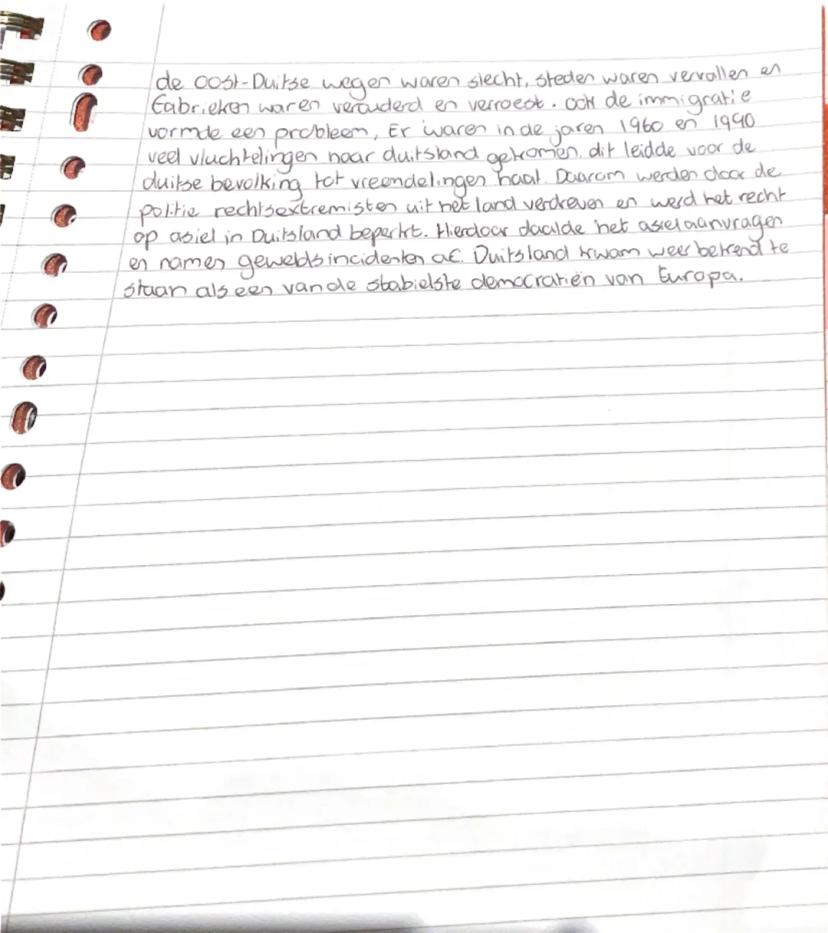 de oost-Duitse wegen waren slecht, steden waren vervallen en
fabrieken waren verouderd en verroest. ook de immigratie
vormde een probleem, Er waren in de jaren 1960 en 1990
veel vluchtelingen naar duitsland gekomen. dit leidde voor de
duitse bevolking tot vreemdelingen haat. Daarom werden door de
politie rechtsextremisten uit het land verdreven en werd het recht
op asiel in Duitsland beperkt. Hierdoor daalde het asielaanvragen
en namen geweldsincidenten af. Duitsland kwam weer bekend te
staan als een van de stabielste democratiën van Europa.